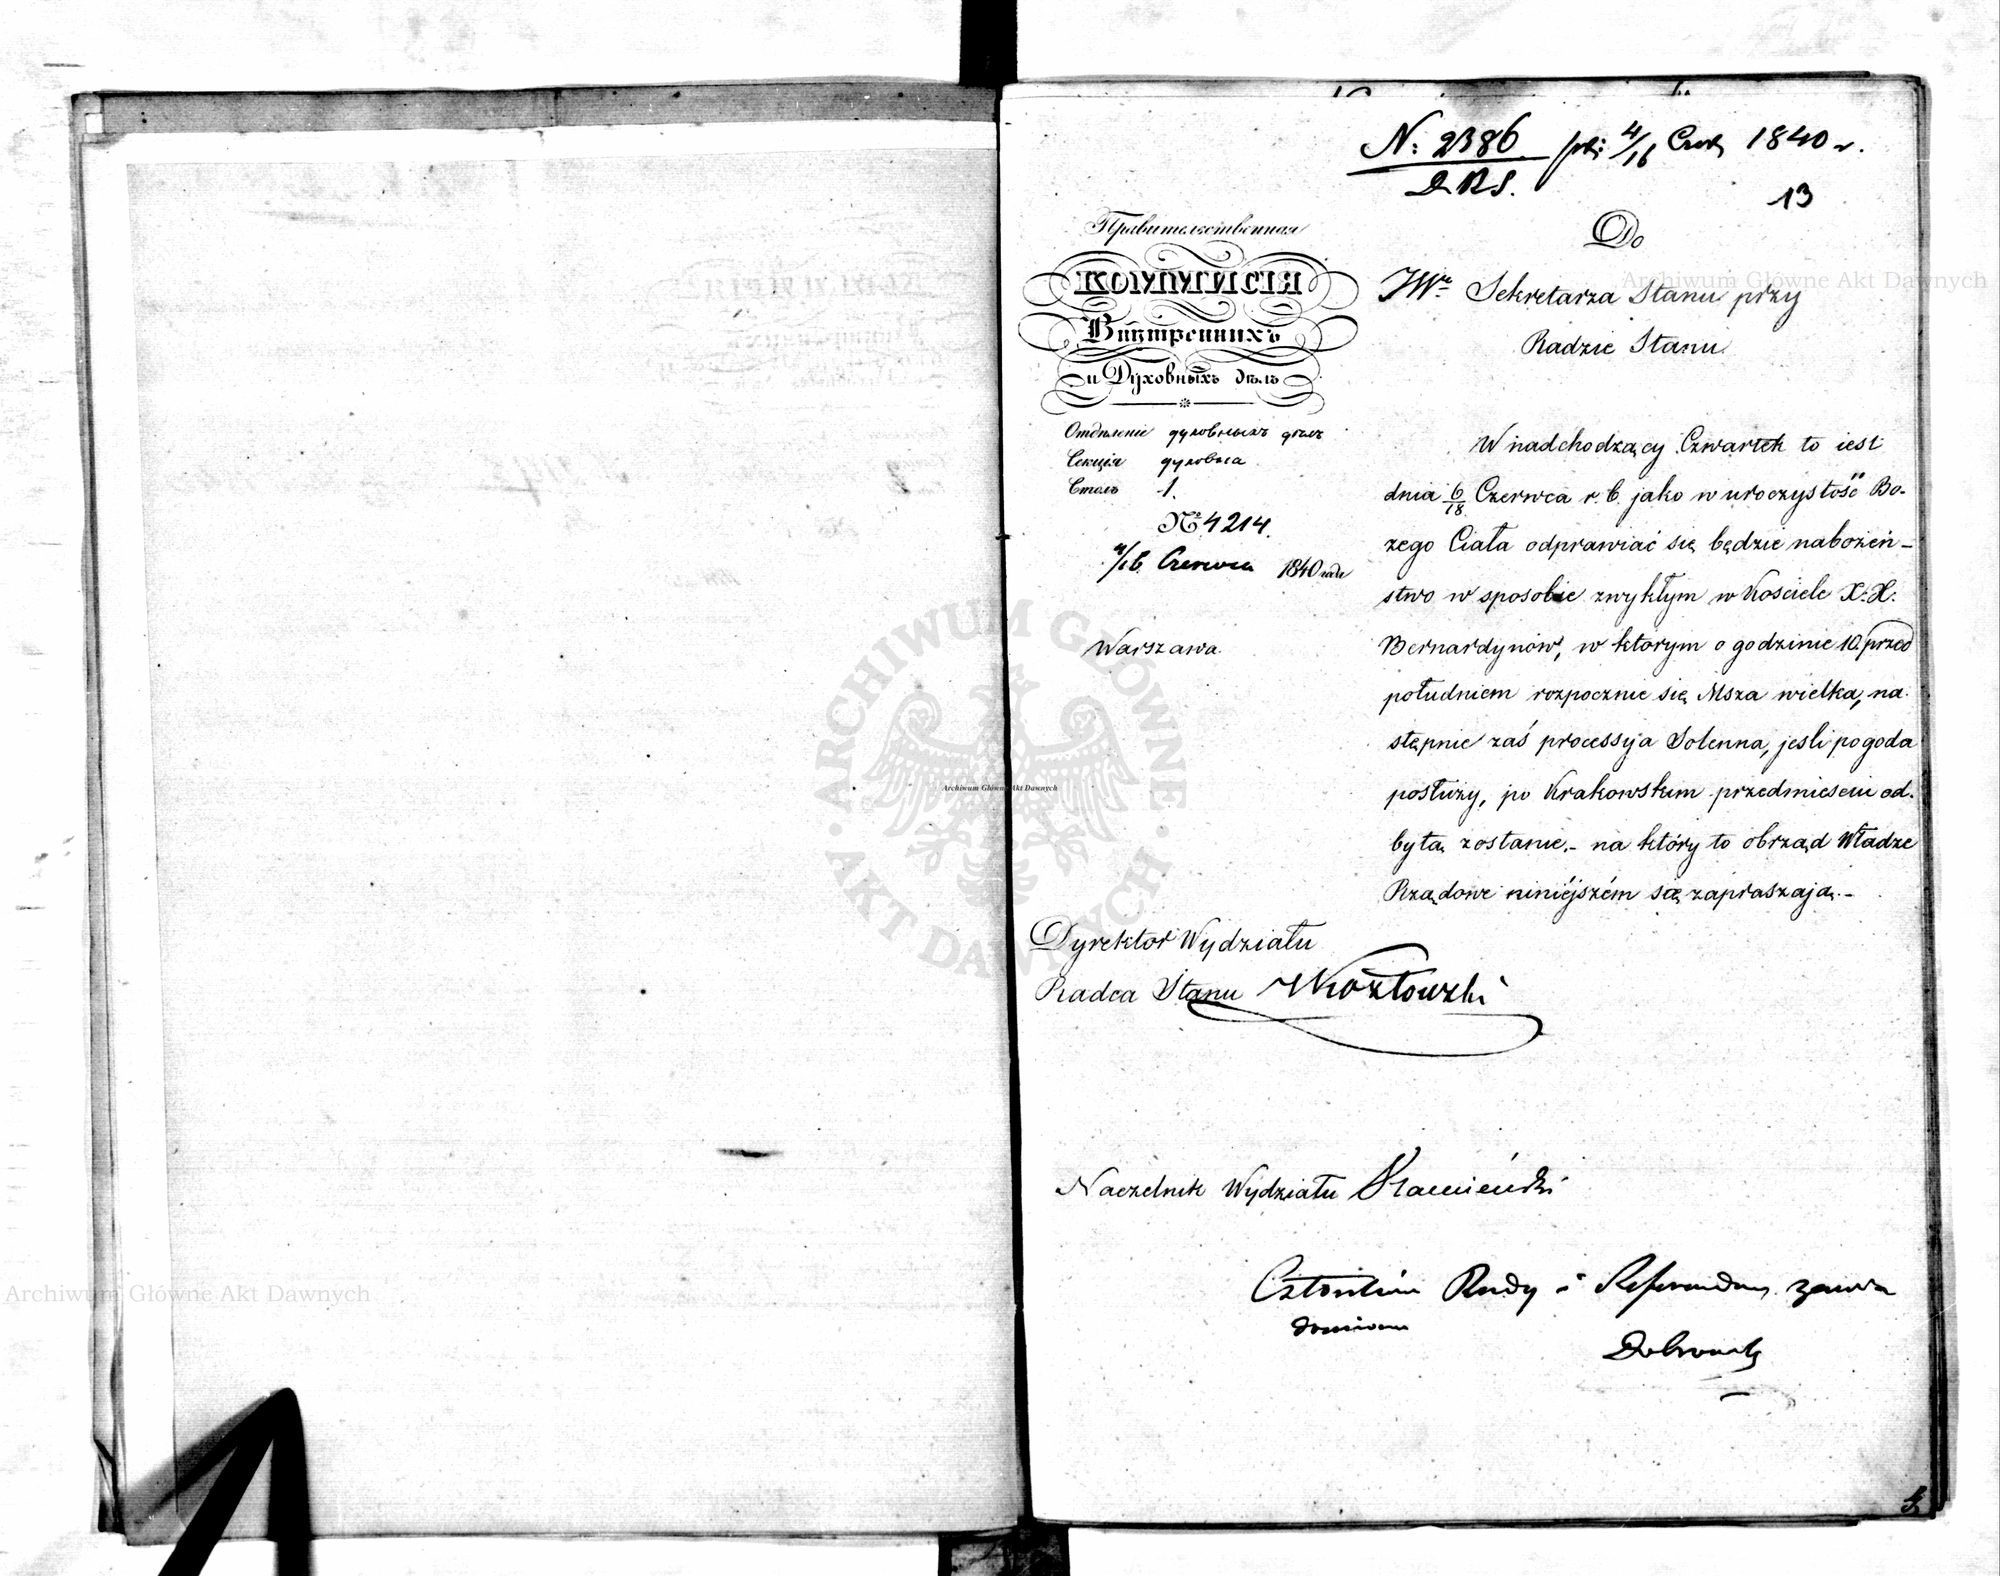 N: 2386 4/16 Czerw 1840 r.
D.R.S.
13
Правительственная
КОММИСІЯ
Внутреннихъ
и Духовныхъ дѣлъ
Отдѣленіе духовныхъ дѣлъ
Секція духовна
Столъ 1.
№ 4214.
4/16 Czerwca 1840 года
Warszawa.
Do
JWo Sekretarza Stanu przy
Radzie Stanu
W nadchodzący Czwartek to iest
dnia 6/18 Czerwca r. b. jako w uroczystość Bo-
żego Ciała odprawiać się będzie nabożeń-
stwo w sposobie zwykłym w Kościele X.X.
Bernardynów, w którym o godzinie 10. przed
południem rozpocznie się Msza wielka, na-
stępnie zaś processyja Solenna, jeśli pogoda
posłuży, po Krakowskim przedmieściu od-
bytą zostanie.- na który to obrząd Władze
Rządowe niniéjszém się zapraszają.-
Dyrektor Wydziału
Radca Stanu Kozłowski
Naczelnik Wydziału Kamieński
Członków Rady i Referendarzy zawia
domiono
Archiwum Główne Akt Dawnych
Archiwum Główne Akt Dawnych
Archiwum Główne Akt Dawnych
ARCHIWUM GŁÓWNE
AKT DAWNYCH